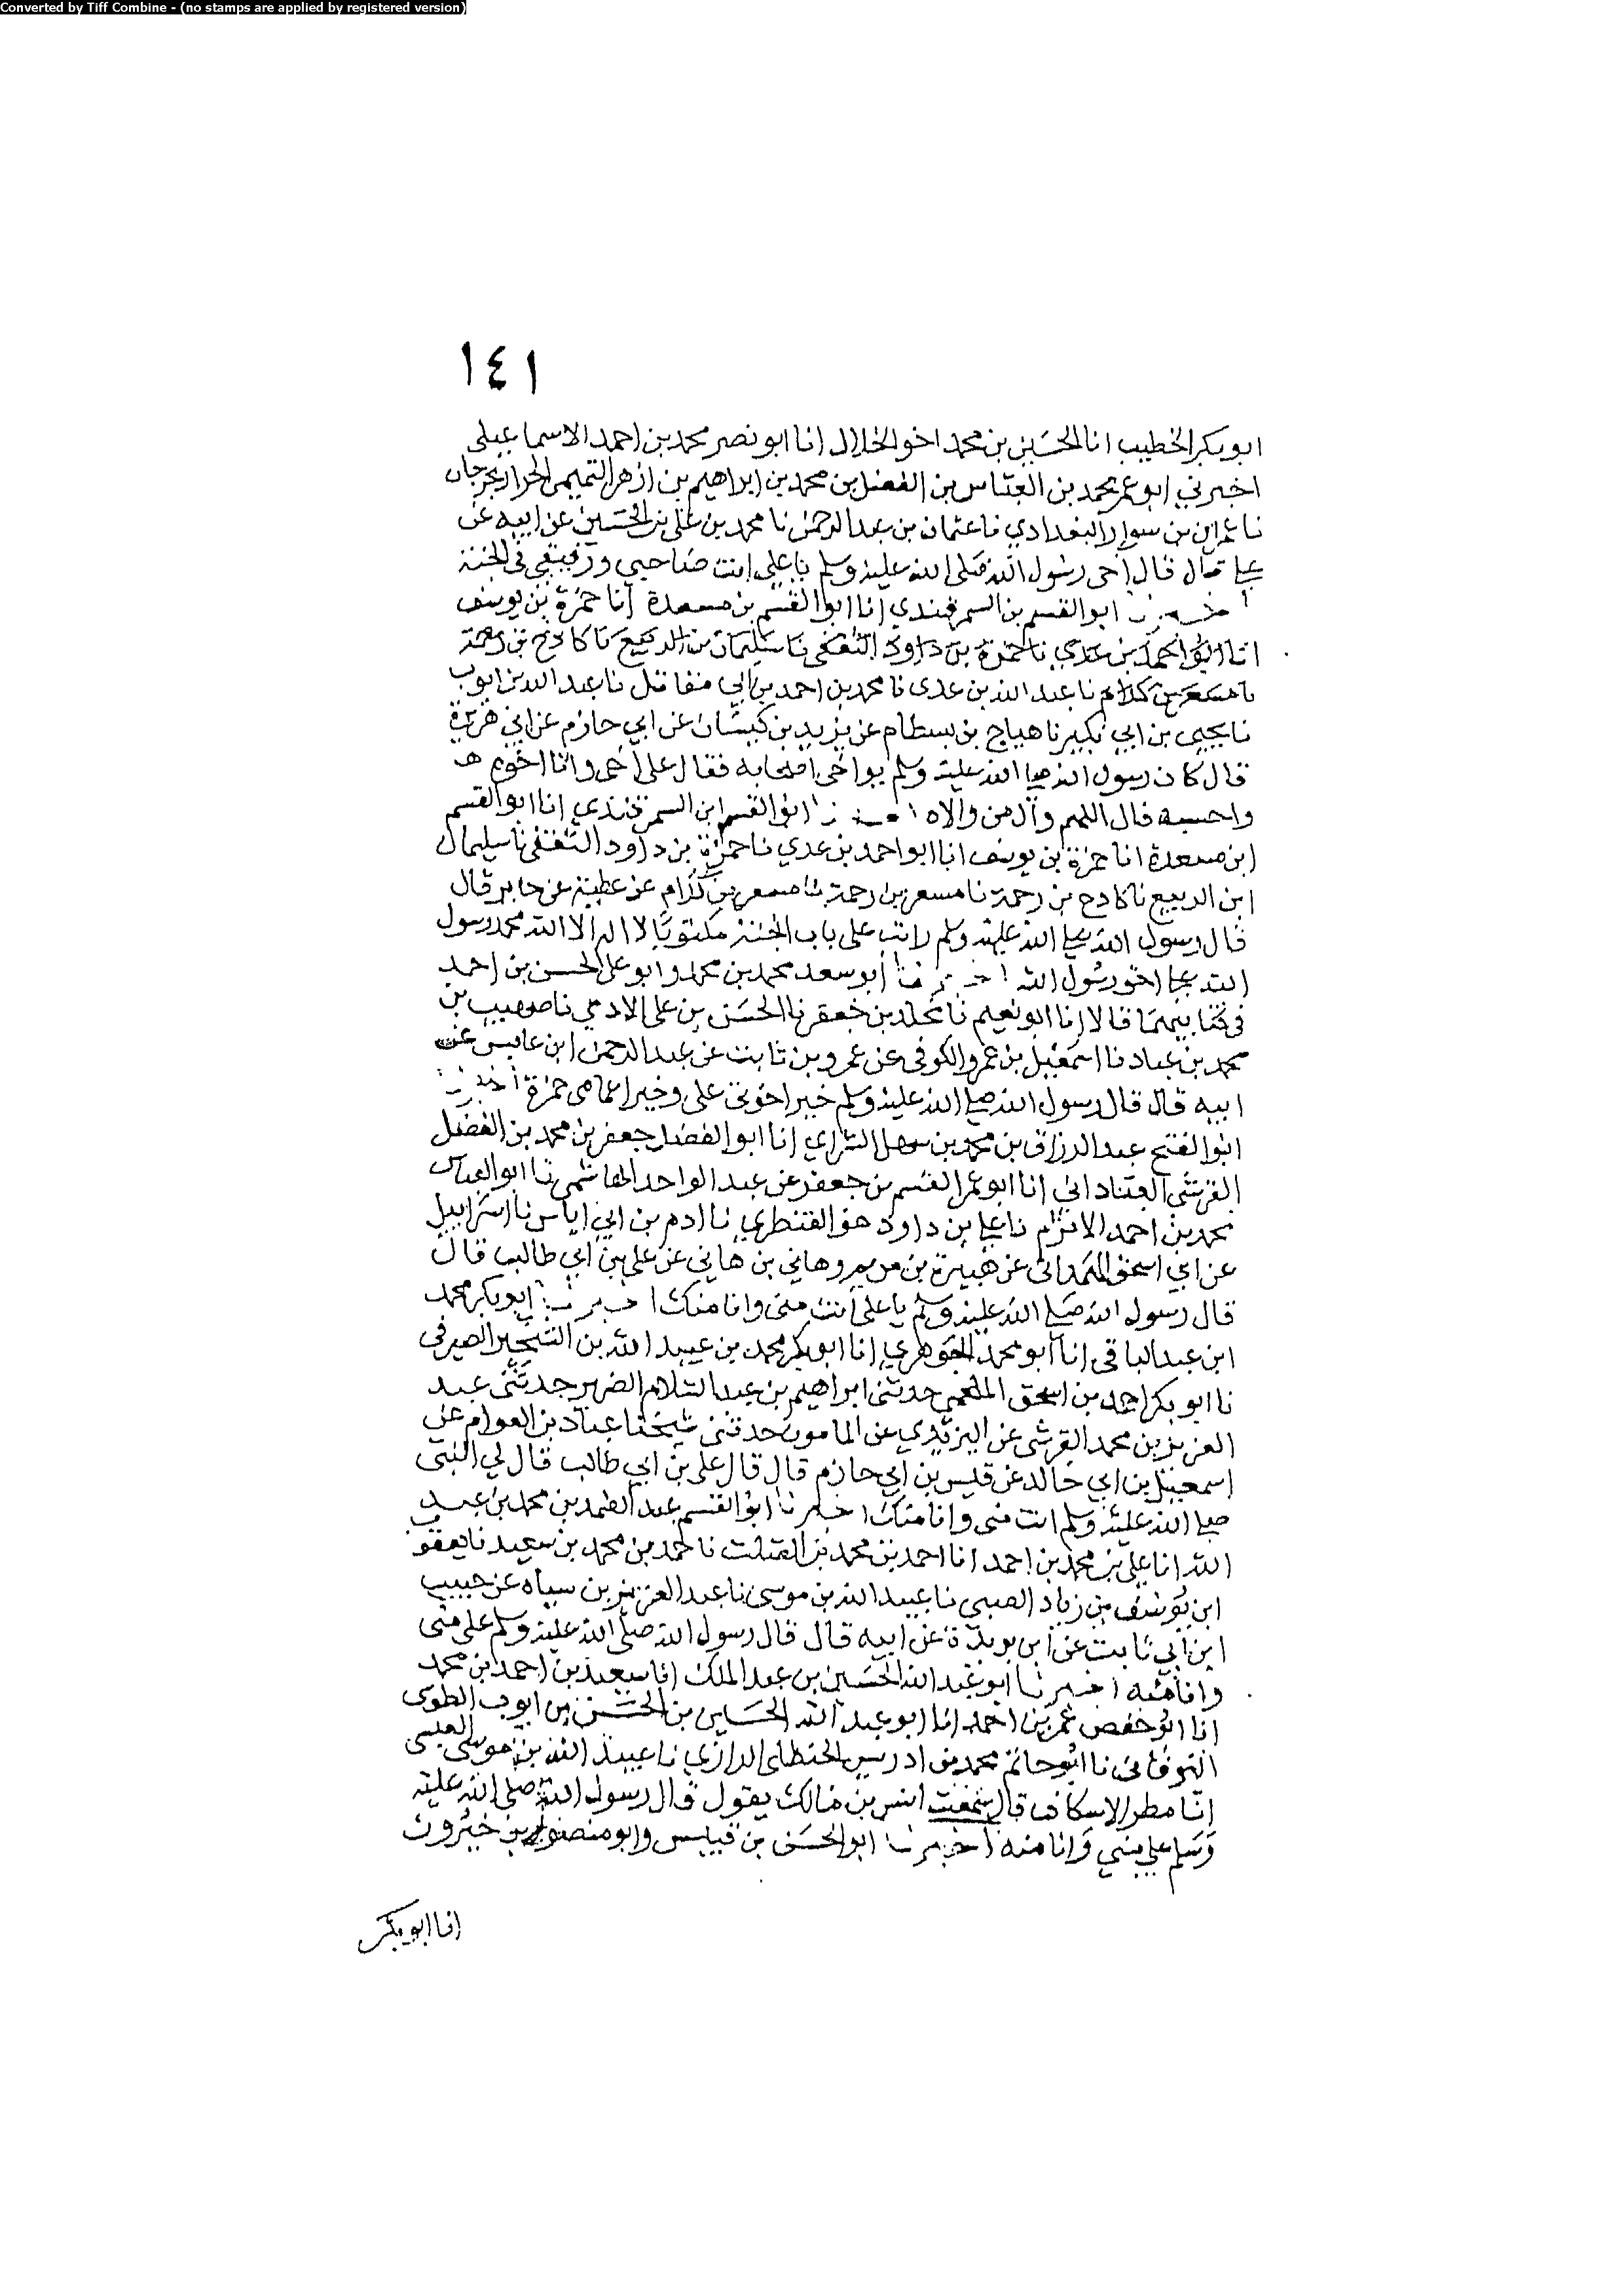 Converted by Tiff Combine - (no stamps are applied by registered version)
١٤١
ابو بكر الخطيب انا الحسين بن محمد اخو الخلال انا ابو نصر محمد بن احمد الاسماعيلى
اخبرني ابو عمر محمد بن العباس بن الفضل بن محمد بن ابراهيم بن ازهر التميمى الخزاز بجرجان
نا عمران بن سوار البغدادي نا عثمان بن عبد الرحمن نا محمد بن على بن الحسين عن ابيه عن
على قال قال لى رسول الله صلى الله عليه وسلم يا على انت صاحبي ورفيقى فى الجنة
اخبرنا ابو القسم بن السمرقندي انا ابو القسم بن مسعدة انا حمزة بن يوسف
انا ابو احمد بن عدي نا حمزة بن داود الثقفى نا سليمان بن الربيع نا كادح بن رحمة
نا مسعر بن كدام نا عبد الله بن عدى نا محمد بن احمد بن ابي مقاتل نا عبد الله بن ايوب
نا يحيى بن ابي بكير نا هياج بن بسطام عن يزيد بن كيسان عن ابي حازم عن ابي هريرة
قال كان رسول الله صلى الله عليه وسلم يواخى اصحابه فقال على اخى وانا اخوه
واحسبه قال اللهم وال من والاه اخبرنا ابو القسم ابن السمرقندي انا ابو القسم
ابن مسعدة انا حمزة بن يوسف انا ابو احمد بن عدي نا حمزة بن داود الثقفى نا سليمان
ابن الربيع نا كادح بن رحمة نا مسعر بن رحمة نا مسعر بن كدام عن عطية عن جابر قال
قال رسول الله صلى الله عليه وسلم رايت على باب الجنة مكتوبا لا اله الا الله محمد رسول
الله على اخو رسول الله اخبرنا ابو سعد محمد بن محمد وابو على الحسن بن احمد
فى كتابيهما قالا انا ابو نعيم نا مخلد بن جعفر نا الحسن بن على الادمي نا صهيب بن
محمد بن عباد نا اسمعيل بن عمرو الكوفى عن عمرو بن ثابت عن عبد الرحمن ابن عابس عن
ابيه قال قال رسول الله صلى الله عليه وسلم خير اخوتى على وخير اعمامى حمزة اخبرنا
ابو الفتح عبد الرزاق بن محمد بن سهل الشرابي انا ابو الفضل جعفر بن محمد بن الفضل
القرشى العباداني انا ابو عمر القسم بن جعفر عن عبد الواحد الهاشمى نا ابو العباس
محمد بن احمد الاثرم نا على بن داود هو القنطري نا ادم بن ابي اياس نا اسرائيل
عن ابي اسحق الهمدانى عن هبيرة بن مريم وهاني بن هاني عن على بن ابي طالب قال
قال رسول الله صلى الله عليه وسلم يا على انت منى وانا منك اخبرنا ابو بكر محمد
ابن عبد الباقى انا ابو محمد الجوهري انا ابو بكر محمد بن عبيد الله بن الشخير الصيرفى
نا ابو بكر احمد بن اسحق الملحمى حدثنى ابراهيم بن عبد السلام الضرير حدثنى عبد
العزيز بن محمد القرشى عن اليزيدي عن المامون حدثنى شيخنا عباد بن العوام عن
اسمعيل بن ابي خالد عن قيس بن ابي حازم قال قال على بن ابي طالب قال لي النبى
صلى الله عليه وسلم انت منى وانا منك اخبرنا ابو القسم عبد الصمد بن محمد بن عبد
الله انا على بن محمد بن احمد انا احمد بن محمد بن الصلت نا احمد بن محمد بن سعيد نا يعقوب
ابن يوسف بن زياد الضبي نا عبيد الله بن موسى نا عبد العزيز بن سياه عن حبيب
ابن ابي ثابت عن ابن بريدة عن ابيه قال قال رسول الله صلى الله عليه وسلم على منى
وانا منه اخبرنا ابو عبد الله الحسين بن عبد الملك انا سعيد بن احمد بن محمد
انا ابو حفص عمر بن احمد انا ابو عبد الله الحسين بن الحسن بن ايوب الطوسى
نا ابو حاتم محمد بن ادريس الحنظلى الرازي نا عبيد الله بن موسى العبسى
انا مطر الاسكاف قال سمعت انس بن مالك يقول قال رسول الله صلى الله عليه
وسلم على مني وانا منه اخبرنا ابو الحسن بن قبيس وابو منصور بن خيرون
انا ابو بكر